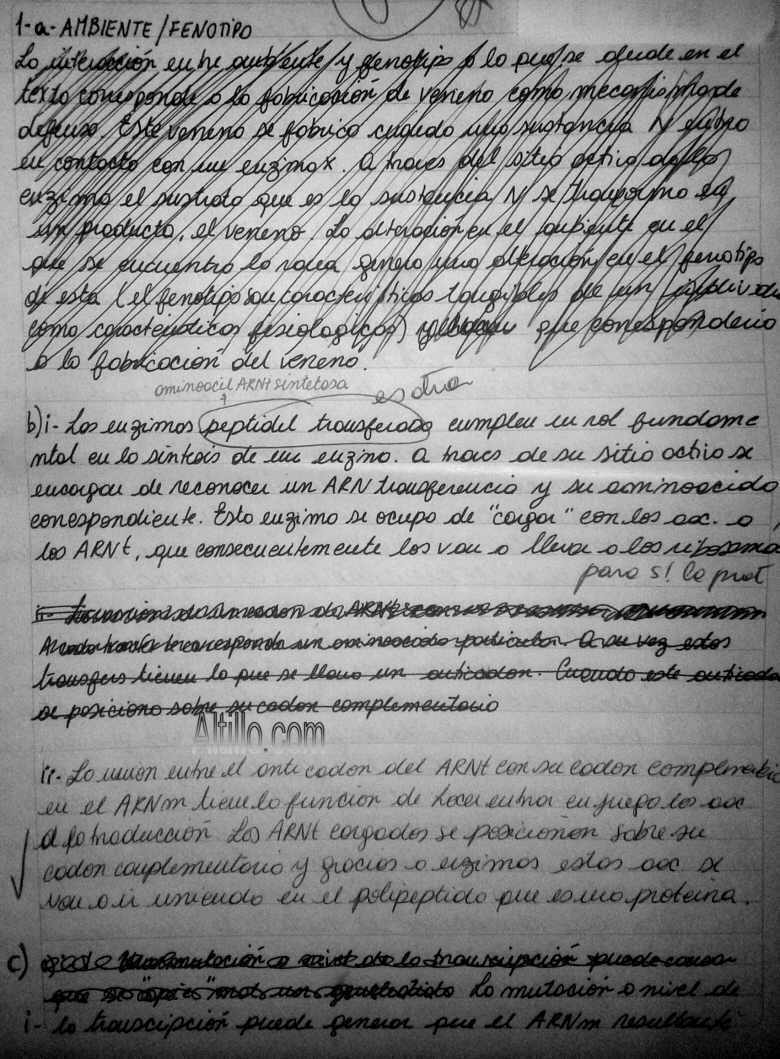 1-a-AMBIENTE/FENOTIPO
La interacción entre ambiente y genotipo a la que se alude en el
texto corresponde a la fabricación de veneno como mecanismo de
defensa. Este veneno se fabrica cuando una sustancia N entra
en contacto con una enzima x. A traves del sitio activo de la
enzima el sustrato que es la sustancia N se transforma en
un producto, el veneno. La alteración en el ambiente en el
que se encuentra la genera una alteración en el fenotipo
de esta (el fenotipo son características tangibles de un individuo
como características fisiologicas) que correspondería
a la fabricación del veneno.
aminoacil ARNt sintetasa
es otra
b)i- Las enzimas peptidil transferasa cumplen un rol fundame
ntal en la sintesis de una enzima. A traves de su sitio activo se
encargan de reconocer un ARN transferencia y su aminoacido
correspondiente. Esta enzima se ocupa de "cargar" con los aac. a
los ARNt, que consecuentemente los van a llevar a los ribosomas
para s! la prot
ii-
A cada transfer le corresponde un aminoacido particular. A su vez estos
transfers tienen lo que se llama un anticodon. Cuando este anticodon
se posiciona sobre su codon complementario
Altillo.com
ii- La union entre el anticodon del ARNt con su codon complementario
en el ARNm tiene la función de hacer entrar en juego los aac
a la traducción. Los ARNt cargados se posicionan sobre su
codon complementario y gracias a enzimas estos aac se
van a ir uniendo en el polipeptido que es una proteina.
c) Una mutación a nivel de la transcripción puede causar
que se "copie" mal La mutación a nivel de
i- la transcipción puede generar que el ARNm resultante